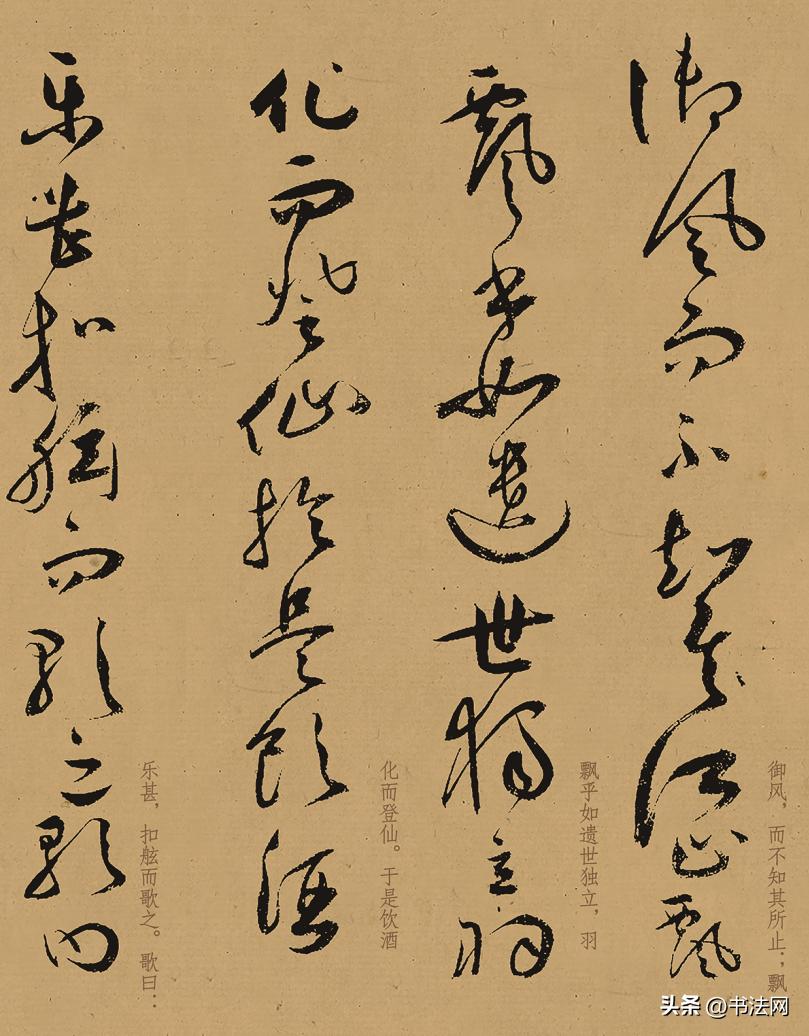 御风而不知其所止飘
御风，而不知其所止；飘
飘乎如遗世独立羽
飘乎如遗世独立，羽
化而登仙于是饮酒
化而登仙。于是饮酒
乐甚扣舷而歌之歌曰
乐甚，扣舷而歌之。歌曰：
头条 @书法网